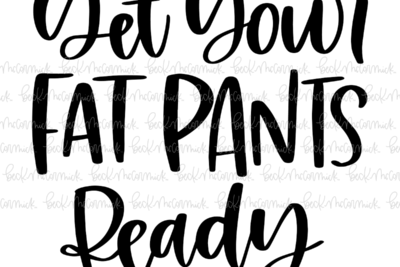 Get Your
FAT PANTS
Ready